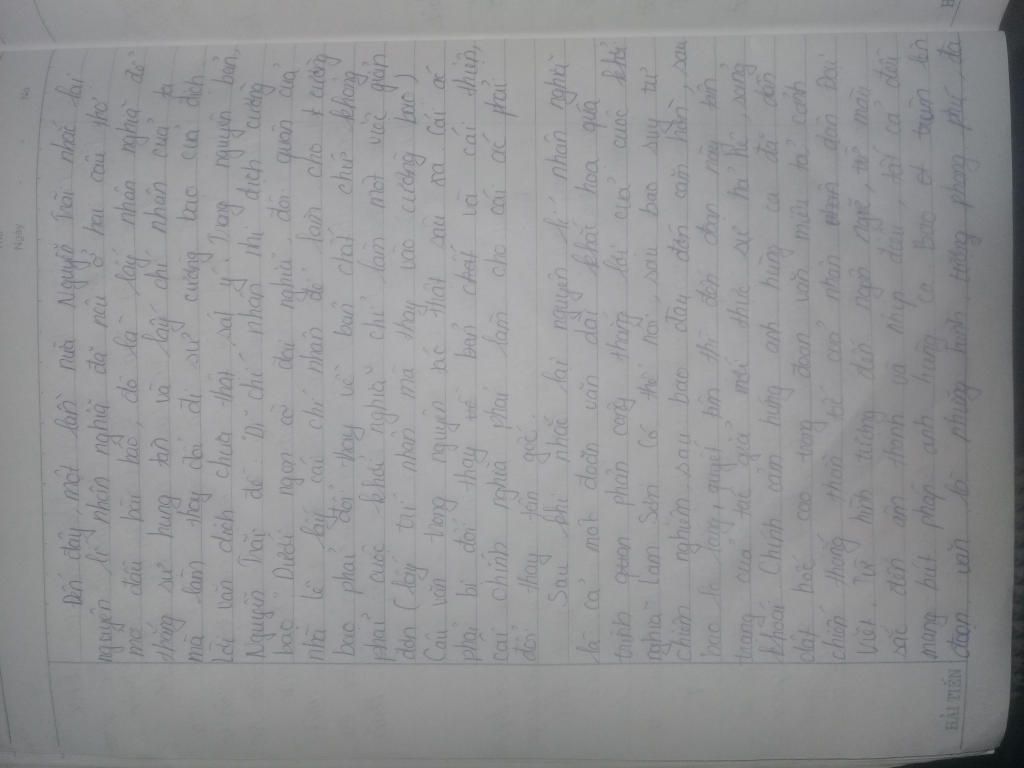 Thứ
Ngày No
Đến đây, một lần nữa Nguyễn Trãi nhắc lại
nguyên lí nhân nghĩa đã nêu ở hai câu thơ
mở đầu bài hồ, đó là lấy nhân nghĩa để
thắng sự hung tàn và lấy chí nhân của ta
mà làm thay đổi đi sự cường bạo của địch
Lời văn dịch chưa thật sát ý. Trong nguyên bản,
Nguyễn Trãi đề Dĩ chí nhân nhi dịch cường
bạo. Dưới ngọn cờ đại nghĩa, đội quân của
nhà Lê lấy cái chí nhân để làm cho + cường
bạo phải đổi thay về bản chất chứ không
phải cuộc khởi nghĩa chỉ làm một việc giản
đơn (lấy trí nhân mà thay vào cường bạo)
Câu văn trong nguyên bác thật sâu xa cái ác
phải bị đổi thay từ bản chất và cái thiện,
cái chính nghĩa phải làm cho cái ác phải
đổi thay tận gốc.
Sau khi nhắc lại nguyên lí nhân nghĩa
là cả một đoạn văn dài khái hoa quá
trình phản công thắng lợi của cuộc khởi
nghĩa Lam Sơn. Có thể nói, sau bao suy tư
chiêm nghiệm sau bao đắng đớn căm hờn, sau
bao lo lắng, quyết tâm thì đến đoạn này tâm
trạng của tác giả mới thức sự hả hê, sung
khoái. Chính cảm hứng anh hùng ca đã dẫn
dắt học cao trong đoạn văn miêu tả cảnh
chiến thắng thần tố của nhân dân Đại
Việt. Từ hình tượng đến ngôn ngữ, từ màu
sắc đến âm thanh và nhịp điệu, tất cả đều
mang bút pháp anh hùng ca. Bao et trùm lên
đoạn văn là những hình tượng phong phú, đa
HẢI TIẾN